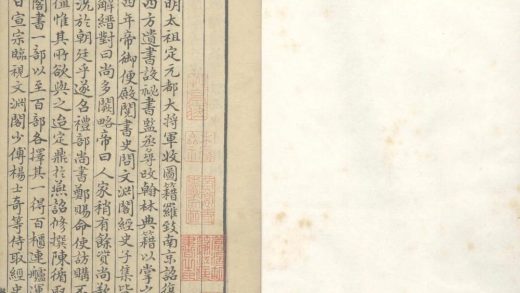 明太祖定元都大將軍收圖籍羅致南京詔復
四方遺書設祕書監丞尋改翰林典籍以掌
四年帝御便殿閱書史問文淵閣經史子集皆
解縉對曰尚多闕略帝曰人家稍有餘資尚欲
況於朝廷乎遂召禮部尚書鄭賜命使訪購
值惟其所欲與之迨定鼎於燕詔修撰陳循取
閣書一部以至百部各擇其一得百櫃連艫
日宣宗臨視文淵閣少傅楊士奇等侍取經史